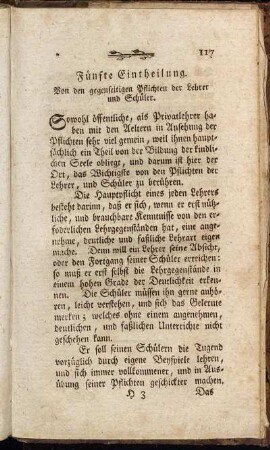 117
Fünfte Eintheilung.
Von den gegenseitigen Pflichten der Lehrer
und Schüler.
Sowohl öffentliche, als Privatlehrer ha-
ben mit den Aeltern in Ansehung der
Pflichten sehr viel gemein, weil ihnen haupt-
sächlich ein Theil von der Bildung der kindli-
chen Seele obliegt, und darum ist hier der
Ort, das Wichtigste von den Pflichten der
Lehrer, und Schüler zu berühren.
Die Hauptpflicht eines jeden Lehrers
besteht darinn, daß er sich, wenn er erst nütz-
liche, und brauchbare Kenntnisse von den er-
foderlichen Lehrgegenständen hat, eine ange-
nehme, deutliche und faßliche Lehrart eigen
mache. Denn will ein Lehrer seine Absicht,
oder den Fortgang seiner Schüler erreichen:
so muß er erst selbst die Lehrgegenstände in
einem hohen Grade der Deutlichkeit erken-
nen. Die Schüler müssen ihn gerne anhö-
ren, leicht verstehen, und sich das Gelernte
merken; welches ohne einem angenehmen,
deutlichen, und faßlichen Unterrichte nicht
geschehen kann.
Er soll seinen Schülern die Tugend
vorzüglich durch eigene Beyspiele lehren,
und sich immer vollkommener, und in Aus-
übung seiner Pflichten geschickter machen.
H 3 Das